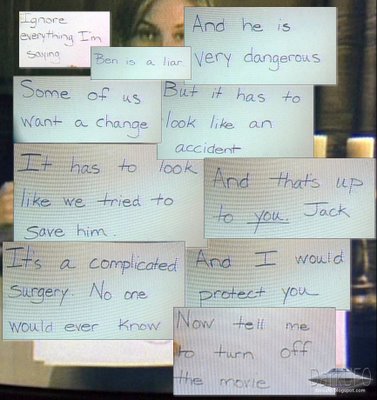 Ignore
everything I'm
saying
Ben is a liar
And he is
very dangerous
Some of us
want a change
But it has to
look like an
accident
It has to look
like we tried to
save him.
And that's up
to you. Jack
It's a complicated
surgery. No one
would ever know
And I would
protect you
Now tell me
to turn off
the movie
DarkUFO
darkufo.blogspot.com